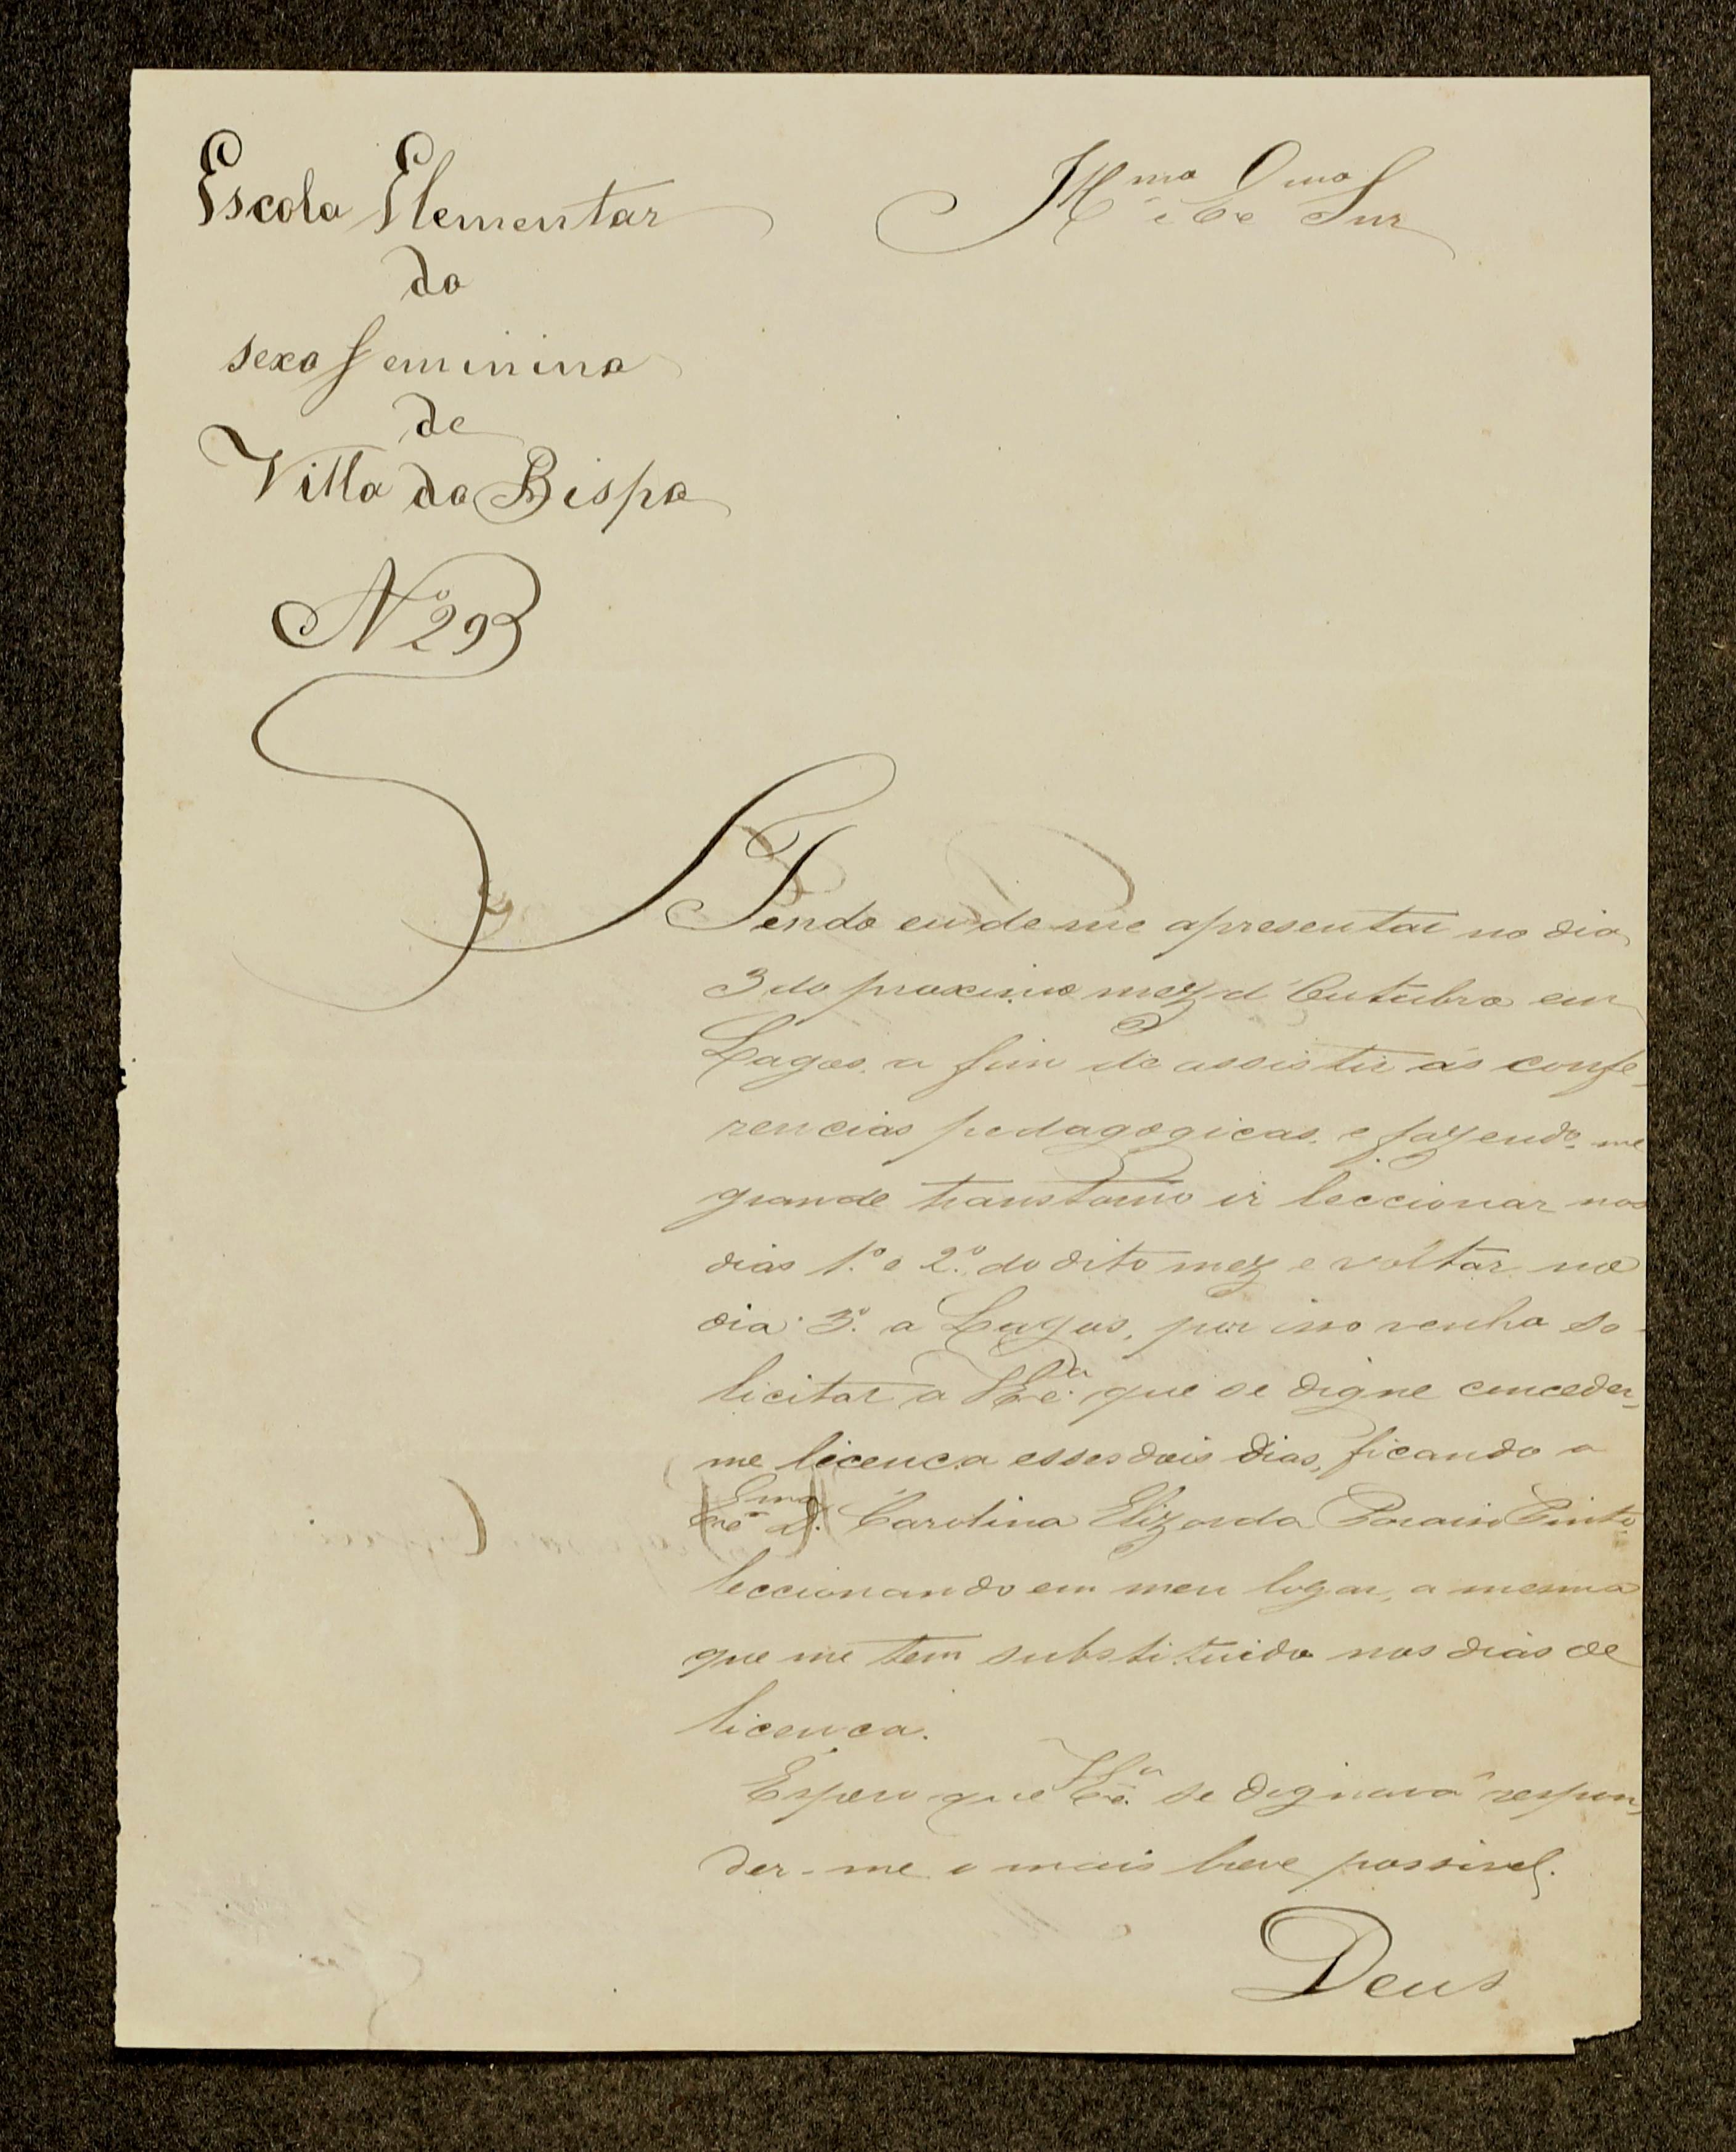 Escola Elementar
do
sexo feminino
de
Villa do Bispo
Nº 293
Illmo e Exmo Snr
Tendo eu de me apresentar no dia
3 do proximo mez d'Outubro em
Lagos, a fim de assistir ás confe-
rencias pedagogicas, e fazendo-me
grande transtorno ir leccionar nos
dias 1.º e 2.º do dito mez e voltar no
dia 3.º a Lagos, por isso venho so-
licitar a V. Ex.ª que se digne conceder-
me licença esses dois dias, ficando a
Exma D. Carolina Elizarda Paraiso Pinto
leccionando em meu logar, a mesma
que me tem substituido nos dias de
licença.
Espero que V. Ex.ª se dignará respon-
der-me o mais breve possivel.
Deus